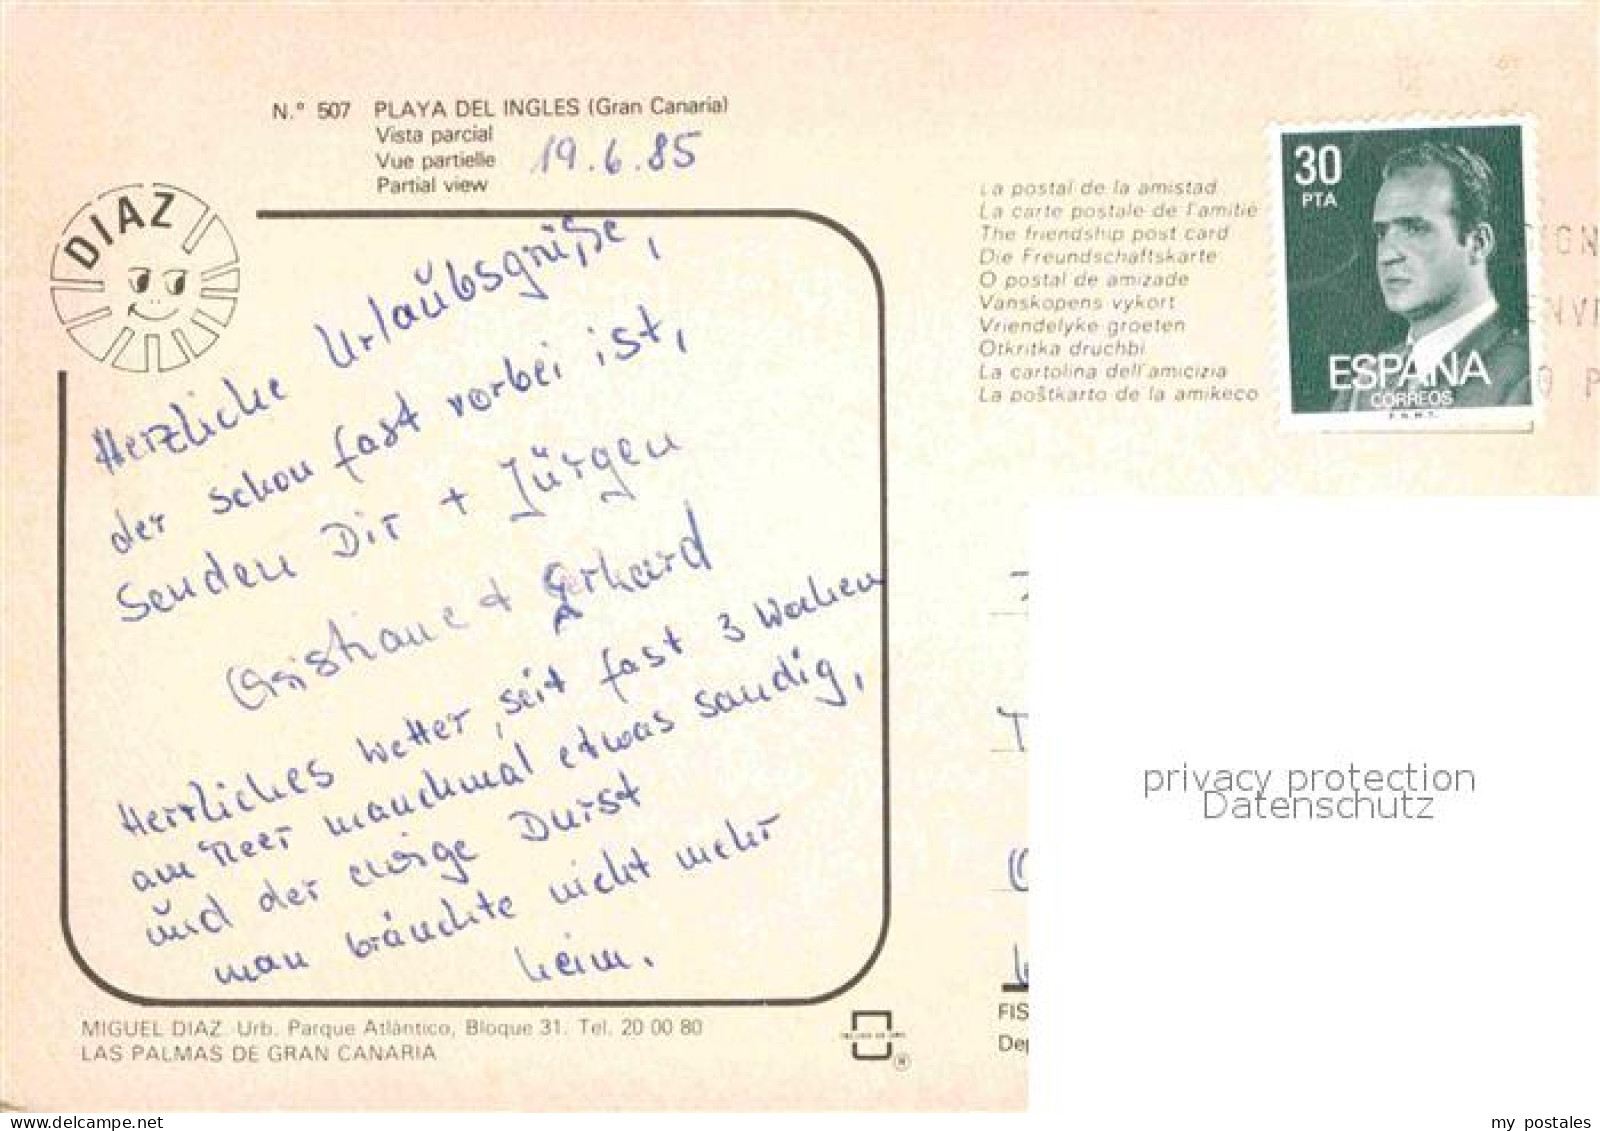 N.° 507 PLAYA DEL INGLES (Gran Canaria)
Vista parcial
Vue partielle
Partial view
19.6.85
DIAZ
Herzliche Urlaubsgrüße,
der schon fast vorbei ist,
senden Dir + Jürgen
Christiane + Gerhard
Herrliches Wetter, seit fast 3 Wochen
am Meer manchmal etwas sandig,
und der ewige Durst
man bräuchte nicht mehr
heim.
MIGUEL DIAZ. Urb. Parque Atlántico, Bloque 31. Tel. 20 00 80
LAS PALMAS DE GRAN CANARIA
®
La postal de la amistad
La carte postale de l'amitié
The friendship post card
Die Freundschaftskarte
O postal de amizade
Vanskopens vykort
Vriendelyke groeten
Otkritka druchbi
La cartolina dell'amicizia
La poŝtkarto de la amikeco
30
PTA
ESPAÑA
CORREOS
F.N.M.T.
privacy protection
Datenschutz
FIS
Dep
my postales